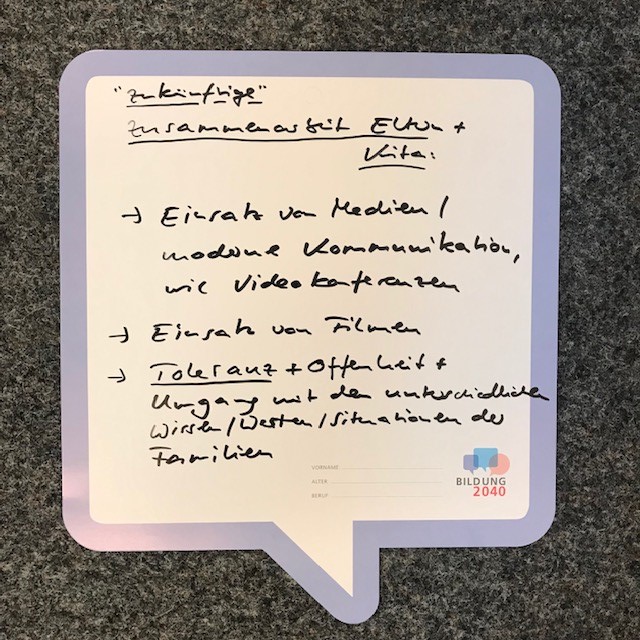 "zukünftige"
Zusammenarbeit Eltern +
Kita:
→ Einsatz von Medien /
moderne Kommunikation,
wie Videokonferenzen
→ Einsatz von Filmen
→ Toleranz + Offenheit +
Umgang mit den unterschiedlichen
Wissen / Werten / Situationen der
Familien
VORNAME
ALTER
BERUF
BILDUNG
2040